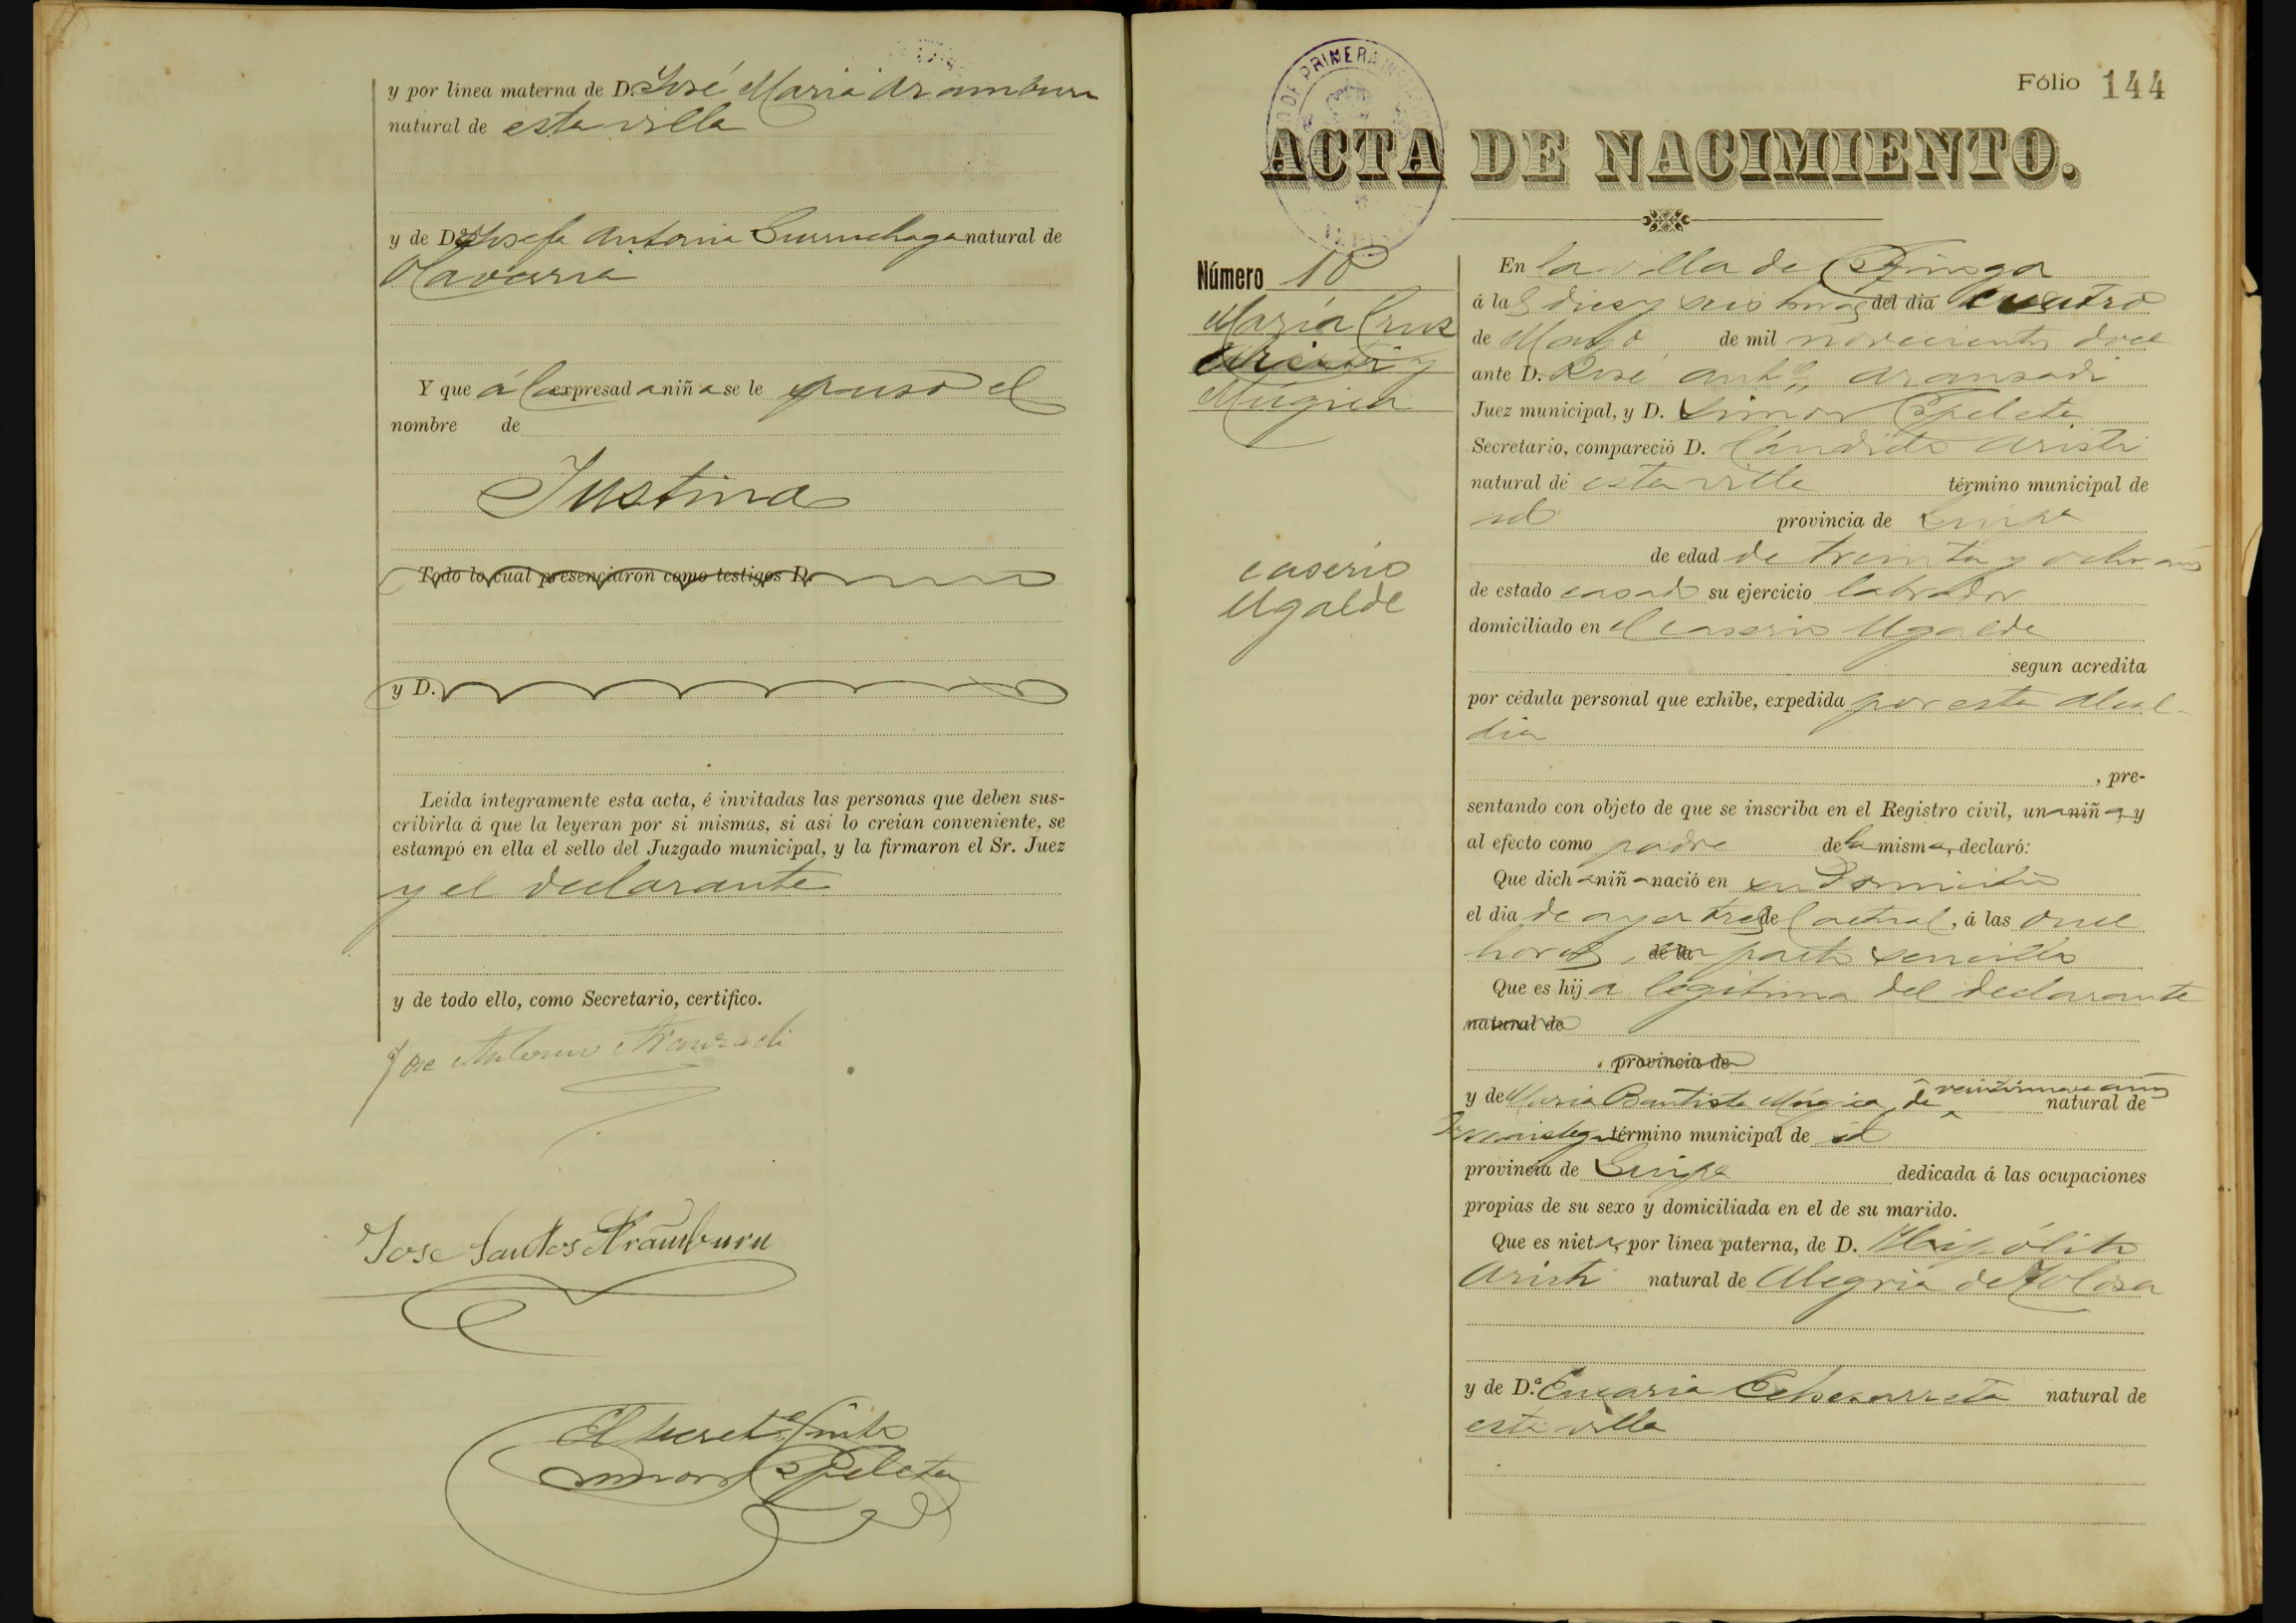 y por línea materna de D. José María Aramburu
natural de esta villa
y de D.ª Josefa Antonia Gurruchaga natural de
Olavarria
Y que á la expresada niña se le puso el
nombre de
Justina
Todo lo cual presenciaron como testigos D.
y D.
Leida íntegramente esta acta, é invitadas las personas que deben sus-
cribirla á que la leyeran por si mismas, si asi lo creian conveniente, se
estampó en ella el sello del Juzgado municipal, y la firmaron el Sr. Juez
y el declarante
y de todo ello, como Secretario, certifico.
Jose Antonio Aranzadi
Jose Santos Aramburu
El Secret.º
Simon Epeleta
Fólio 144
ACTA DE NACIMIENTO.
Número 18
María Cruz
Aristi y
Múgica
caserio
Ugalde
En la villa de
á las diez y seis horas del dia cuatro
de Mayo de mil novecientos doce
ante D. José Ant.º Aranzadi
Juez municipal, y D. Simon Epeleta
Secretario, compareció D. Cándido Aristi
natural de esta villa término municipal de
id provincia de Guipª
de edad de treinta y ocho años
de estado casado su ejercicio labrador
domiciliado en el caserio Ugalde
segun acredita
por cédula personal que exhibe, expedida por esta Alcal-
dia
, pre-
sentando con objeto de que se inscriba en el Registro civil, una niña, y
al efecto como padre de la misma, declaró:
Que dicha niña nació en su domicilio
el dia de ayer tres del actual, á las once
horas, de la parto sencillo
Que es hija legítima del declarante
natural de
provincia de
y de Maria Bautista Múgica, de veintinueve años natural de
término municipal de id
provincia de Guipª dedicada á las ocupaciones
propias de su sexo y domiciliada en el de su marido.
Que es nieta, por línea paterna, de D. Hipólito
Aristi natural de Alegria de Tolosa
y de D.ª Eucaria Echevarreta natural de
esta villa